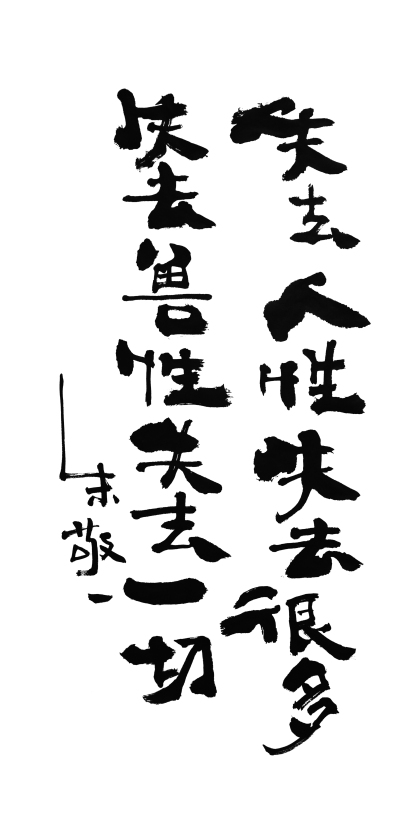 失去人性失去很多
失去兽性失去一切
朱敬一